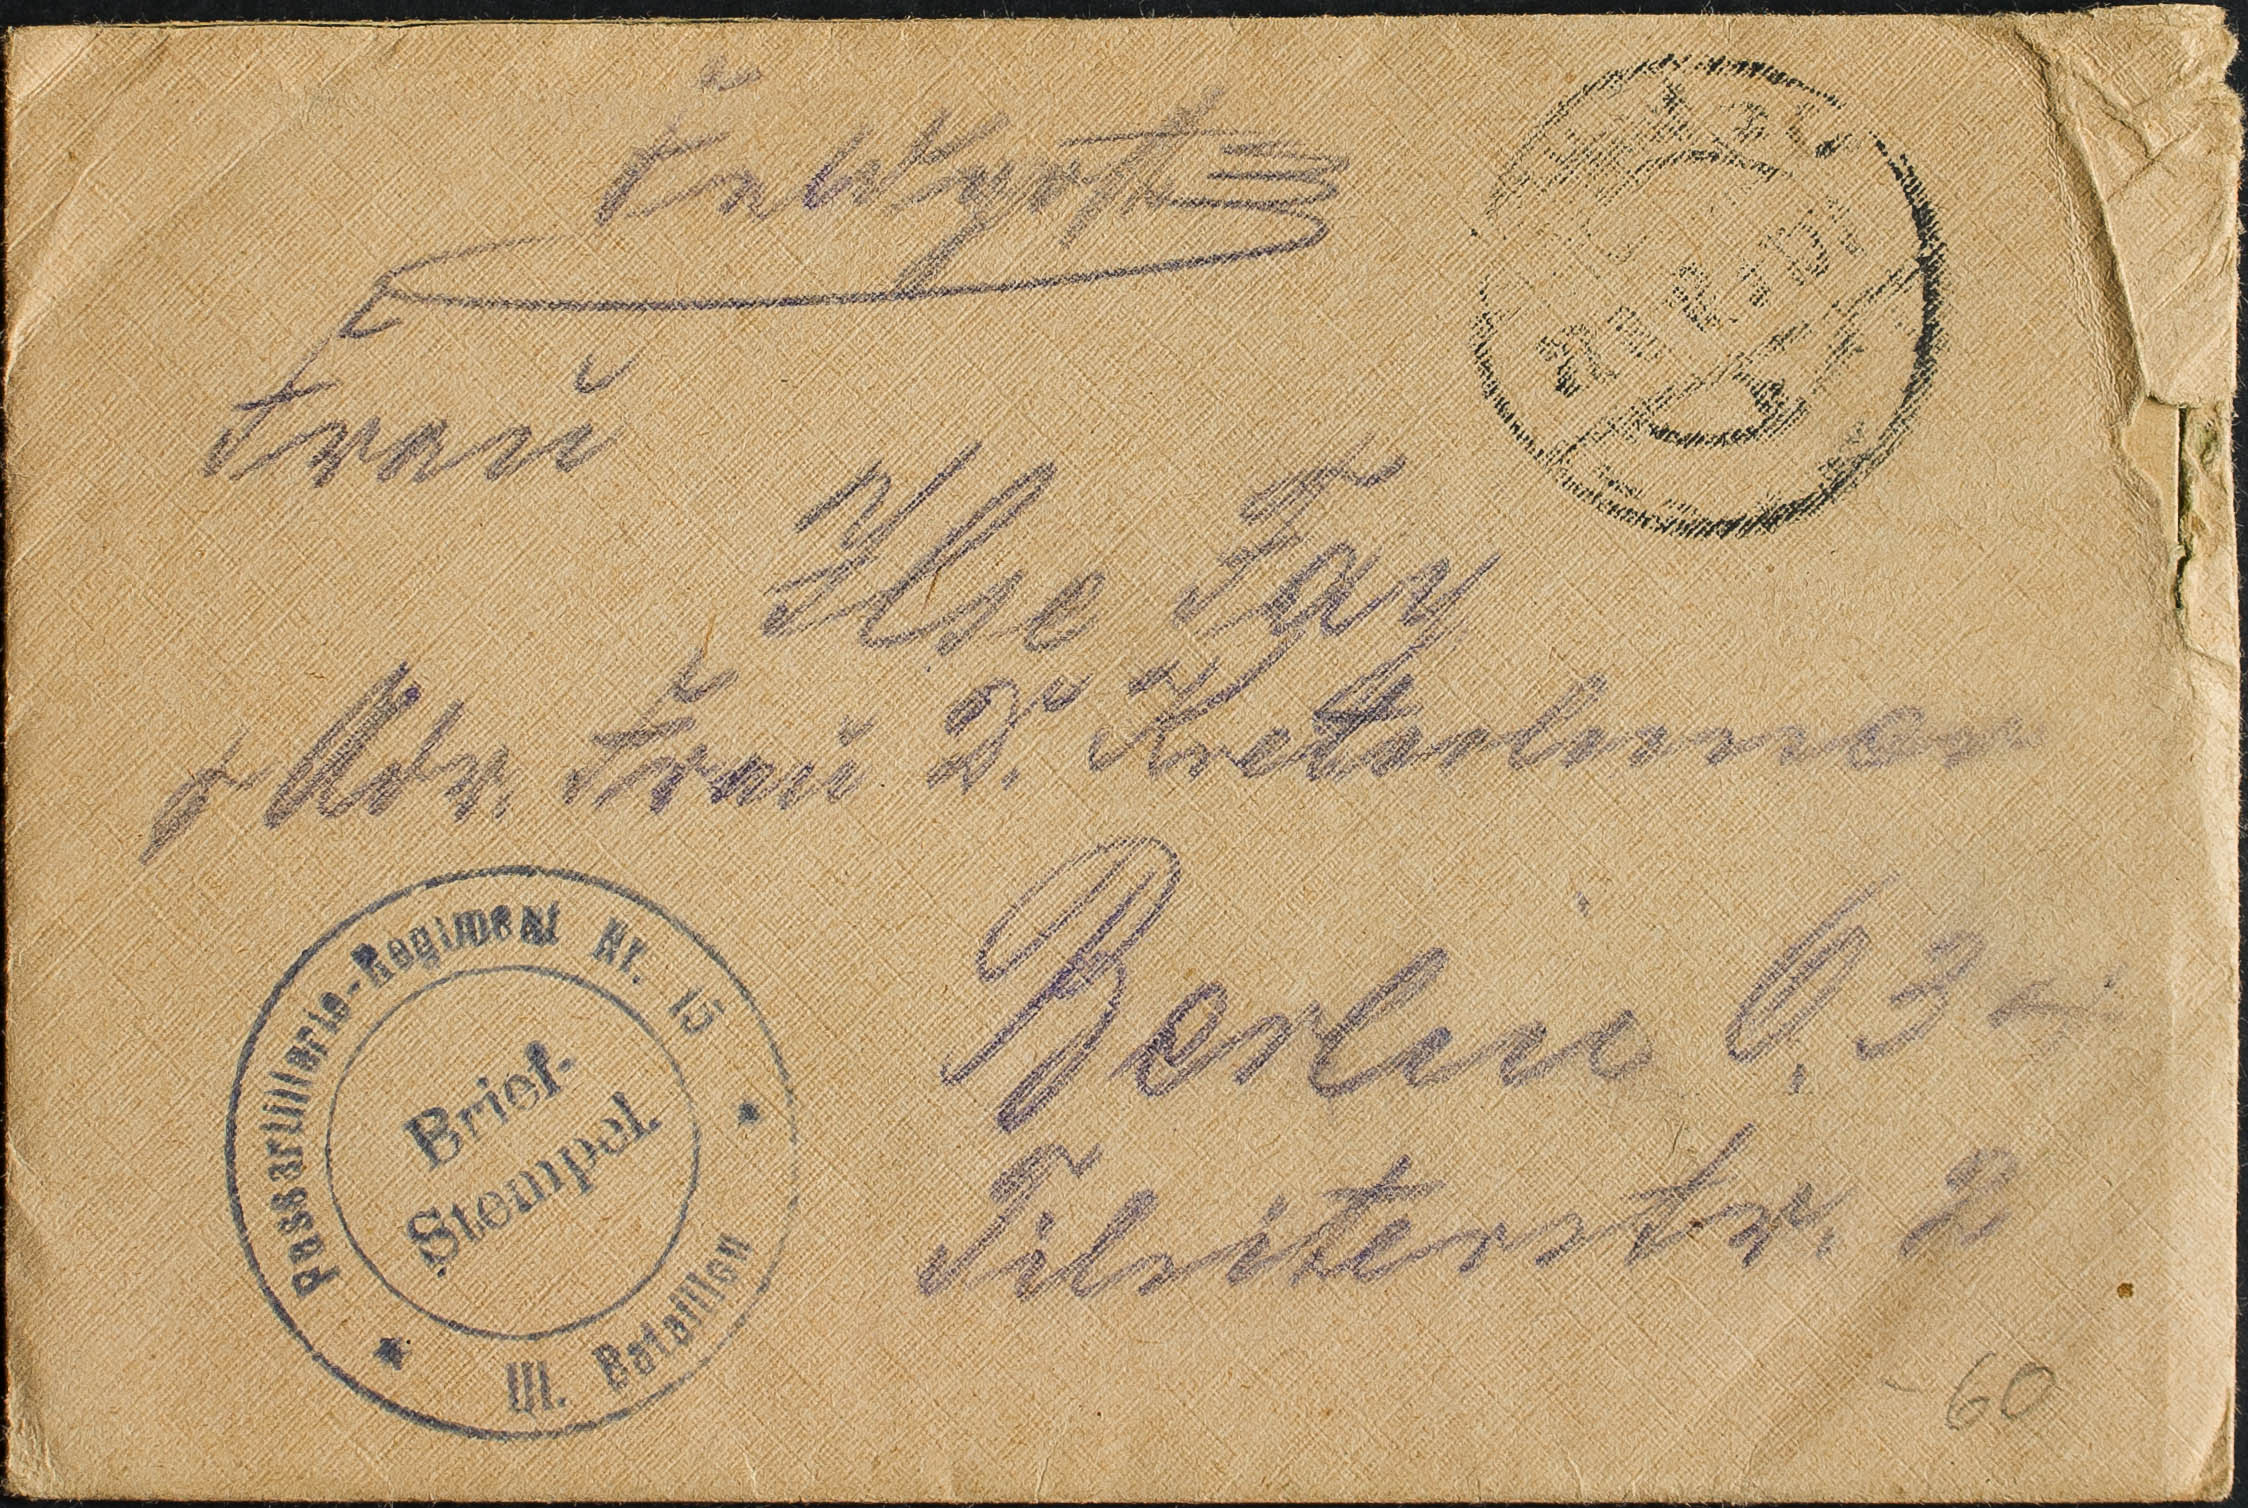 Feldpost
Frau
Ilse Fay
p Adr. Frau Dr Kretschmer
Berlin O. 34
Tilsiterstr. 2
Fussartillerie-Regiment Nr. 15
Brief-
Stempel.
III. Bataillon
60